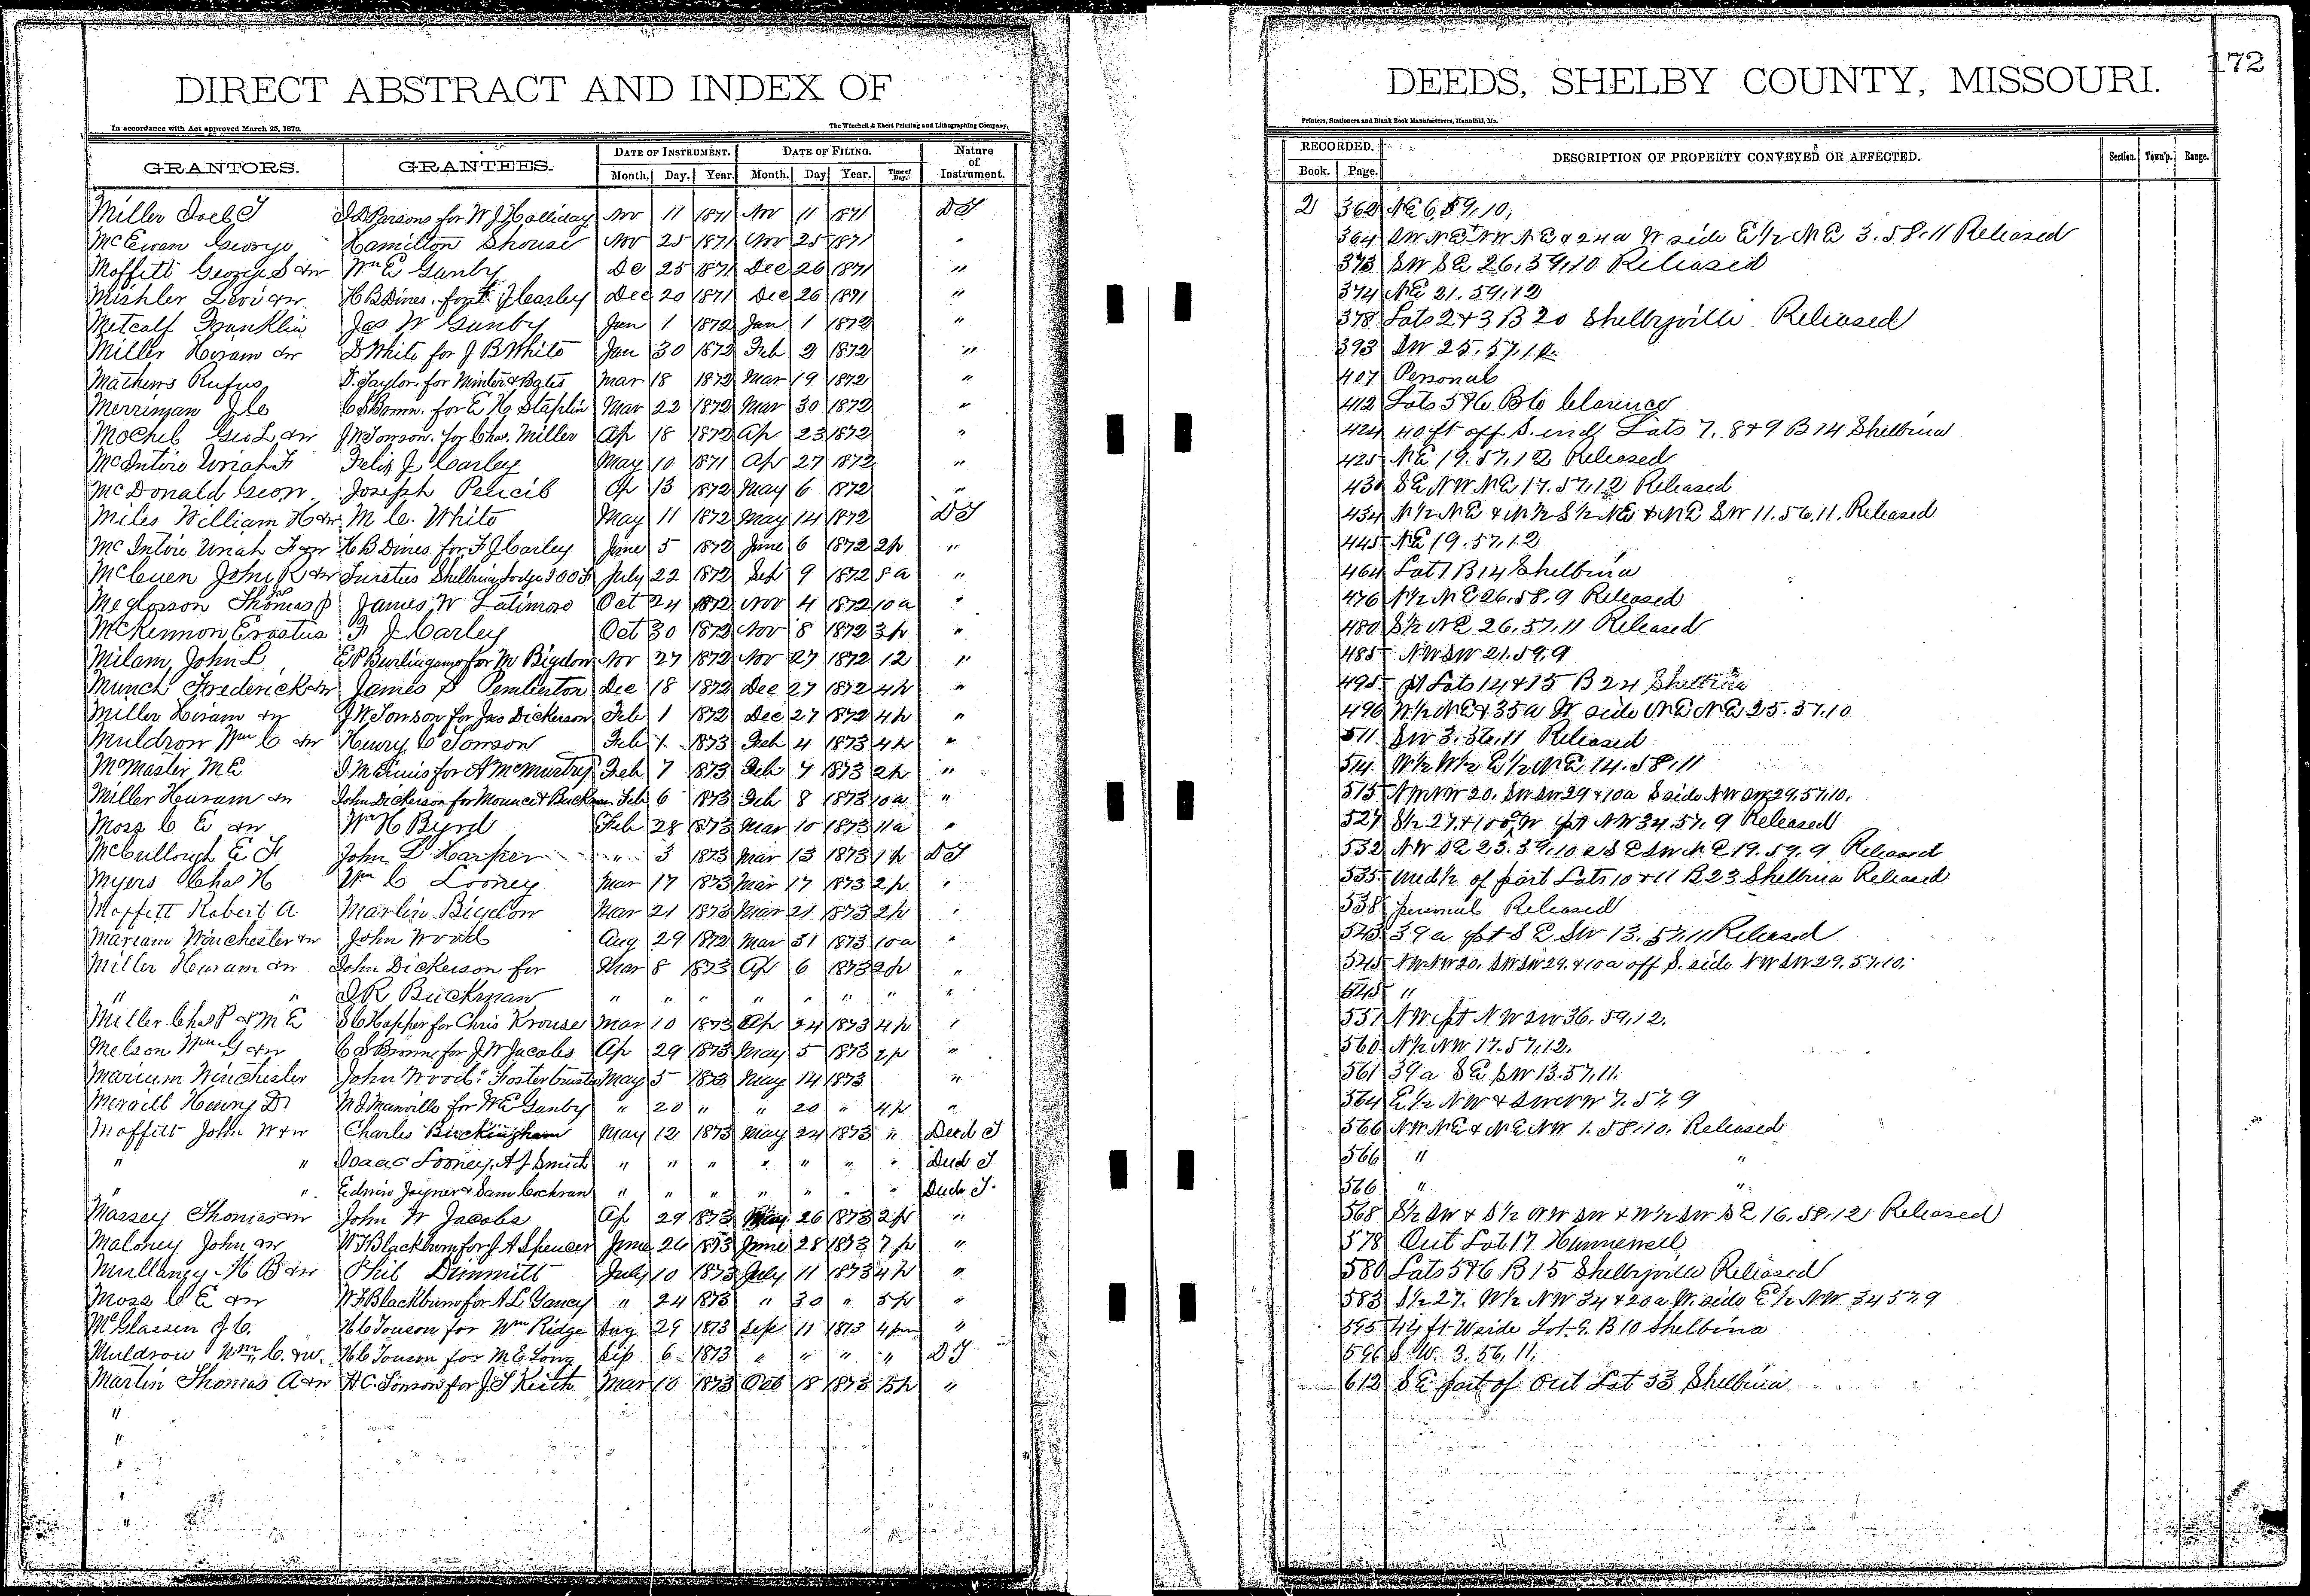 DIRECT ABSTRACT AND INDEX OF
In accordance with Act approved March 25, 1870.
The Winchell & Ebert Printing and Lithographing Company,
GRANTORS. GRANTEES. DATE OF INSTRUMENT. DATE OF FILING. Nature of Instrument.
Month. Day. Year. Month. Day Year. Time of Day.
Miller Joel T J D Parsons for W J Holliday Nov 11 1871 Nov 11 1871 DT
McEwen George Hamilton Shouse Nov 25 1871 Nov 25 1871 "
Moffitt George S &w Wm E Gunby De 25 1871 Dec 26 1871 "
Mishler Levi &w H B Dines for F J Carley Dec 20 1871 Dec 26 1871 "
Metcalf Franklin Jas W Gunby Jan 1 1872 Jan 1 1872 "
Miller Hiram &w D White for J B White Jan 30 1872 Feb 2 1872 "
Mathews Rufus D. Taylor for Minter & Bates Mar 18 1872 Mar 19 1872 "
Merriman J C C S Brown for E K Staplin Mar 22 1872 Mar 30 1872 "
Mochel Geo L &w J W Towson for Chas. Miller Ap 18 1872 Ap 23 1872 "
McIntire Uriah F Felix J Carley May 10 1871 Ap 27 1872 "
McDonald Geo w Joseph Pencil Ap 13 1872 May 6 1872 "
Miles William H &w M C. White May 11 1872 May 14 1872 DT
McIntire Uriah F &w H B Dines for F J Carley June 5 1872 June 6 1872 2p "
McCuen John R &w Trustees Shelbina Lodge IOOF July 22 1872 Sep 9 1872 8a "
Meglasson Thomas P James W Latimore Oct 24 1872 Nov 4 1872 10a "
McKennon Erastus F J Carley Oct 30 1872 Nov 8 1872 3p "
Milam, John L E P Burlingame for M Bigelow Nov 27 1872 Nov 27 1872 12 "
Munch Frederick &w James S Pemberton Dec 18 1872 Dec 27 1872 4p "
Miller Hiram &w J W Towson for Jas Dickerson Feb 1 1872 Dec 27 1872 4p "
Muldrow Wm C &w Henry C Towson Feb 1 1873 Feb 4 1873 4p "
McMaster M E J M Ennis for A McMurtry Feb 7 1873 Feb 7 1873 2p "
Miller Huram &w John Dickerson for Mounce & Buckman Feb 6 1873 Feb 8 1873 10a "
Moss C E &w Wm H Byrd Feb 28 1873 Mar 10 1873 11a "
McCullough E F John L Harper " 3 1873 Mar 13 1873 1p DT
Myers Chas H Wm C Looney Mar 17 1873 Mar 17 1873 2p "
Moffett Robert A Marlin Bigelow Mar 21 1873 Mar 21 1873 2p "
Mariam Winchester &w John Wood Aug 29 1872 Mar 31 1873 10a "
Miller Huram &w John Dickerson for Mar 8 1873 Ap 6 1873 2p "
" " J R Buckman " " " " " " " "
Miller Chas P & M E S C Happer for Chris Krouse Mar 10 1873 Ap 24 1873 4p "
Melson Wm G &w C S Brown for J W Jacobs Ap 29 1873 May 5 1873 2p "
Marium Winchester John Wood. Foster trustee May 5 1873 May 14 1873 "
Merrill Henry D M J Manville for W E Gunby " 20 " " 20 " 4p "
Moffitt John W &w Charles Buckingham May 12 1873 May 24 1873 " Deed T
" " Isaac Looney, A J Smith " " " " " " " Deed T
" " Edwin Joyner & Sam Cochran " " " " " " " Deed T.
Massey Thomas &w John W Jacobs Ap 29 1873 May 26 1873 2p "
Maloney John &w W F Blackburn for J A Spencer June 26 1873 June 28 1873 7p "
Mullaney H B &w Phil Dimmitt July 10 1873 July 11 1873 4p "
Moss C E &w W F Blackburn for A L Yancy " 24 1873 " 30 " 5p "
McGlassen J C. H C Towson for Wm Ridge Aug 29 1873 Sep 11 1873 4pm "
Muldrow Wm, C. &w. H C Towson for M E Long Sep 6 1873 " " " " DT
Martin Thomas A &w H C. Towson for J T Keith Mar 10 1873 Oct 18 1873 5p "
"
"
"
"
"
172
DEEDS, SHELBY COUNTY, MISSOURI.
Printers, Stationers and Blank Book Manufacturers, Hannibal, Mo.
RECORDED. DESCRIPTION OF PROPERTY CONVEYED OR AFFECTED. Section. Town'p. Range.
Book. Page.
2 362 NE 6, 59, 10,
364 SW NE & NW NE & 24a W side E1/2 NE 3. 58. 11 Released
373 SW SE 26, 59, 10 Released
374 NE 21. 59. 12
378 Lots 2 & 3 B 20 Shelbyville Released
393 SW 25. 57. 12
407 Personal
412 Lots 5 & 6 B 6 Clarence
424 40 ft off S. end Lots 7, 8 & 9 B 14 Shelbina
425 NE 19. 57. 12 Released
430 SE NW NE 17. 57. 12 Released
434 N1/2 NE & N1/2 S1/2 NE & NE SW 11. 56. 11. Released
445 NE 19. 57. 12
464 Lot 1 B 14 Shelbina
476 N1/2 NE 26. 58. 9 Released
480 S1/2 NE 26. 57. 11 Released
485 NW SW 21. 59. 9
495 pt Lots 14 & 15 B 24 Shelbina
496 W1/2 NE & 35a W side NE NE 25. 57. 10
511 SW 3. 56. 11 Released
514. W1/2 W1/2 E1/2 NE 14. 58. 11
515 NW NW 20. SW SW 29 & 10a S side NW SW 29. 57. 10.
527 S1/2 27. & 100a W pt NW 34. 57. 9 Released
532 NW SE 23. 59. 10 & SE SW NE 19. 59. 9. Released
535 und 1/2 of part Lots 10 & 11 B 23 Shelbina Released
538 personal Released
543 39a pt SE SW 13. 57. 11 Released
545 NW NW 20. SW SW 29. & 10a off S. side NW SW 29. 57. 10.
545 "
551 NW pt NW SW 36. 59. 12.
560 N1/2 NW 17. 57. 12.
561 39a SE SW 13. 57. 11.
564 E1/2 NW & SW NW 7. 57. 9
566 NW NE & NE NW 1. 58. 10. Released
566 " "
566 " "
568 S1/2 SW & S1/2 NW SW & W1/2 SW SE 16. 58. 12 Released
578 Out Lot 17 Hunnewell
580 Lots 5 & 6 B 15 Shelbyville Released
583 S1/2 27. W1/2 NW 34 & 20a W. side E1/2 NW 34 57. 9
595 44 ft W side Lot 9. B 10 Shelbina
596 S. W. 3. 56, 11.
612 SE part of Out Lot 33 Shelbina